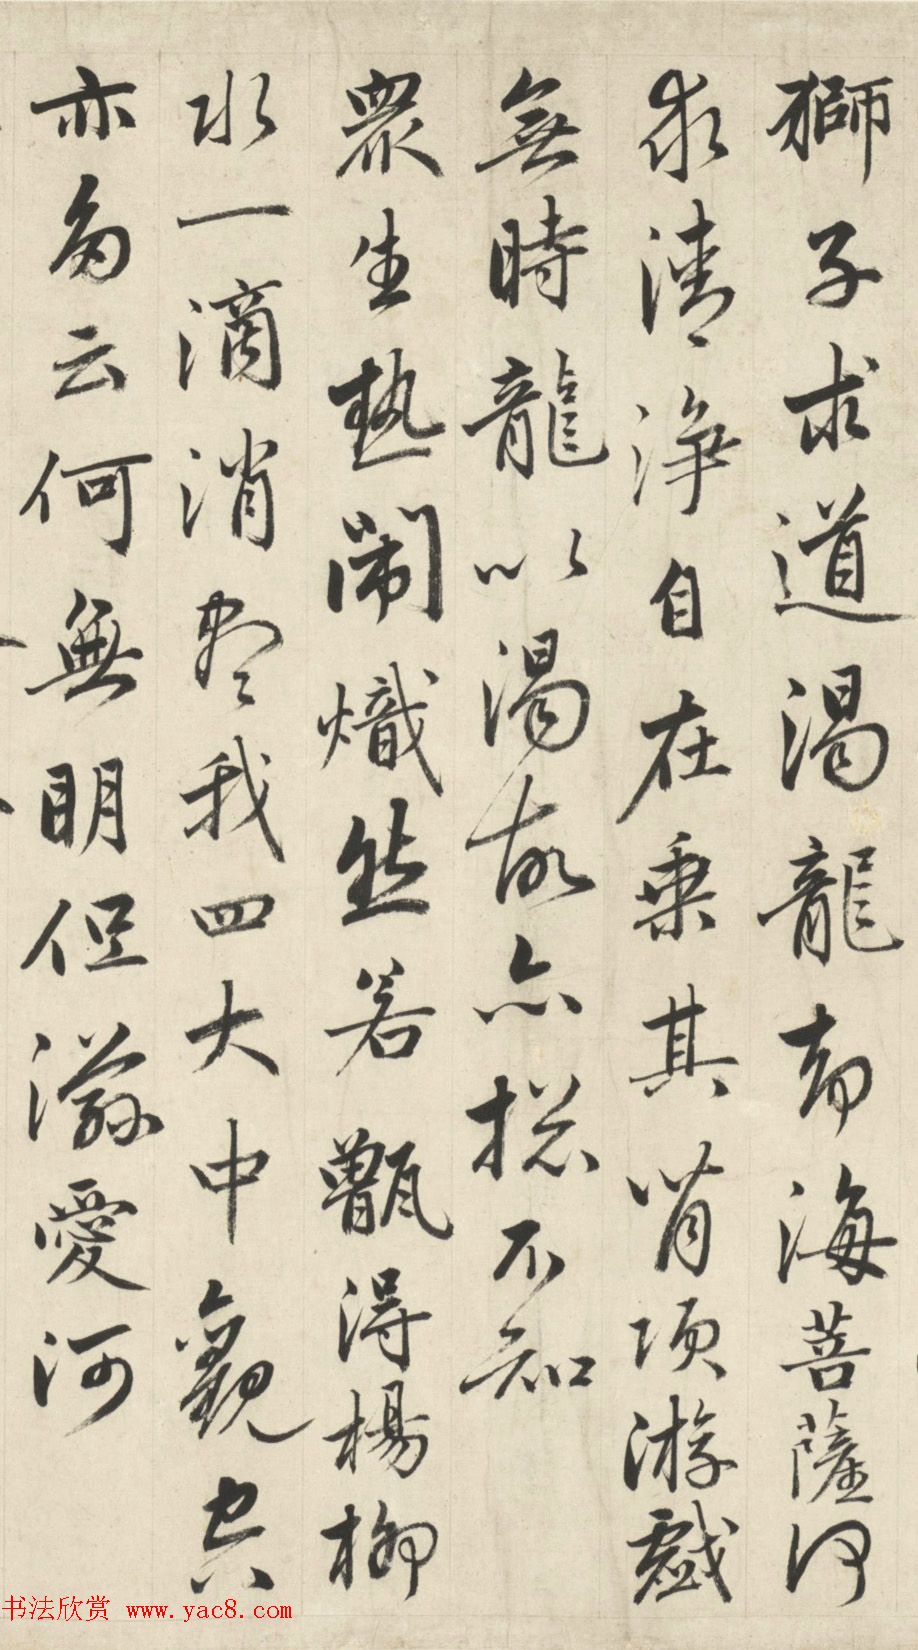 獅子求道渴龍却海菩薩何
求清淨自在乘其背項游戲
無時龍以渴故亦揔不知
眾生熱鬧熾然若甑得楊柳
水一滴消盡我四大中觀空
亦易云何無明但滋愛河
书法欣赏 www.yac8.com